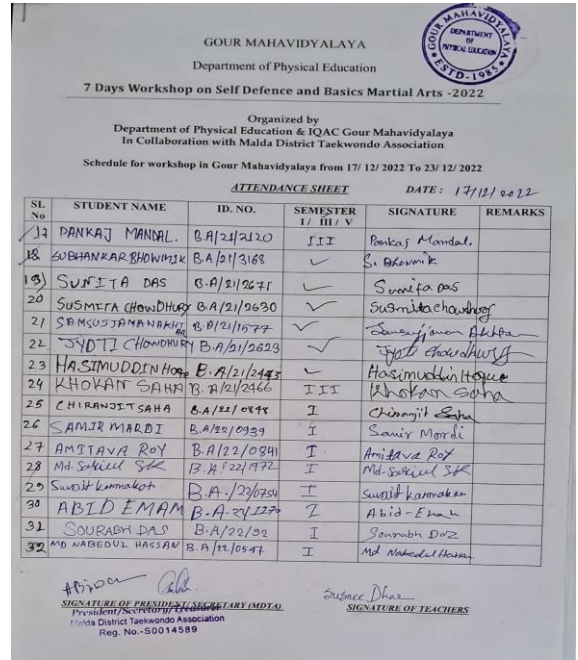 GOUR MAHAVIDYALAYA
DEPARTMENT
OF
PHYSICAL EDUCATION
ESTD-1985
GOUR MAHAVIDYALAYA
Department of Physical Education
7 Days Workshop on Self Defence and Basics Martial Arts -2022
Organized by
Department of Physical Education & IQAC Gour Mahavidyalaya
In Collaboration with Malda District Taekwondo Association
Schedule for workshop in Gour Mahavidyalaya from 17/ 12/ 2022 To 23/ 12/ 2022
ATTENDANCE SHEET DATE: 17/12/2022
SL No STUDENT NAME ID. NO. SEMESTER I/ III/ V SIGNATURE REMARKS
17 PANKAJ MANDAL. B.A/21/2120 III Pankaj Mandal.
18 SUBHANKAR BHOWMIK B.A/21/3168 ✓ S. Bhowmik
19) SUNITA DAS B.A/21/2671 ✓ Sunita Das
20 SUSMITA CHOWDHURY B.A/21/2630 ✓ Susmita chowdhury
21 B.A/21/1577 ✓
22 JYOTI CHOWDHURY B.A/21/2623 ✓ Jyoti chowdhury
23 HASIMUDDIN Hoque B.A/21/2443 ✓ Hasimuddin Hoque
24 KHOKAN SAHA B.A/21/2466 III Khokan Saha
25 CHIRANJIT SAHA B.A/22/0848 I Chiranjit Saha
26 SAMIR MARDI B.A/22/0939 I Samir Mardi
27 AMITAVA ROY B.A/22/0841 I Amitava Roy
28 Md. SK B.A/22/1972 I Md. SK
29 Surojit Karmakar B.A./22/0754 I Surojit Karmakar
30 ABID EMAM B.A-22/1270 I Abid-Emam
31 SOURABH DAS B.A/22/92 I Sourabh Das
32 MD NABEDUL HASSAN B.A/22/0547 I Md Nabedul Hassan
Susnee Dhar
SIGNATURE OF PRESIDENT/SECRETARY (MDTA) SIGNATURE OF TEACHERS
President/Secretary/Treasurer
Malda District Taekwondo Association
Reg. No.-S0014589